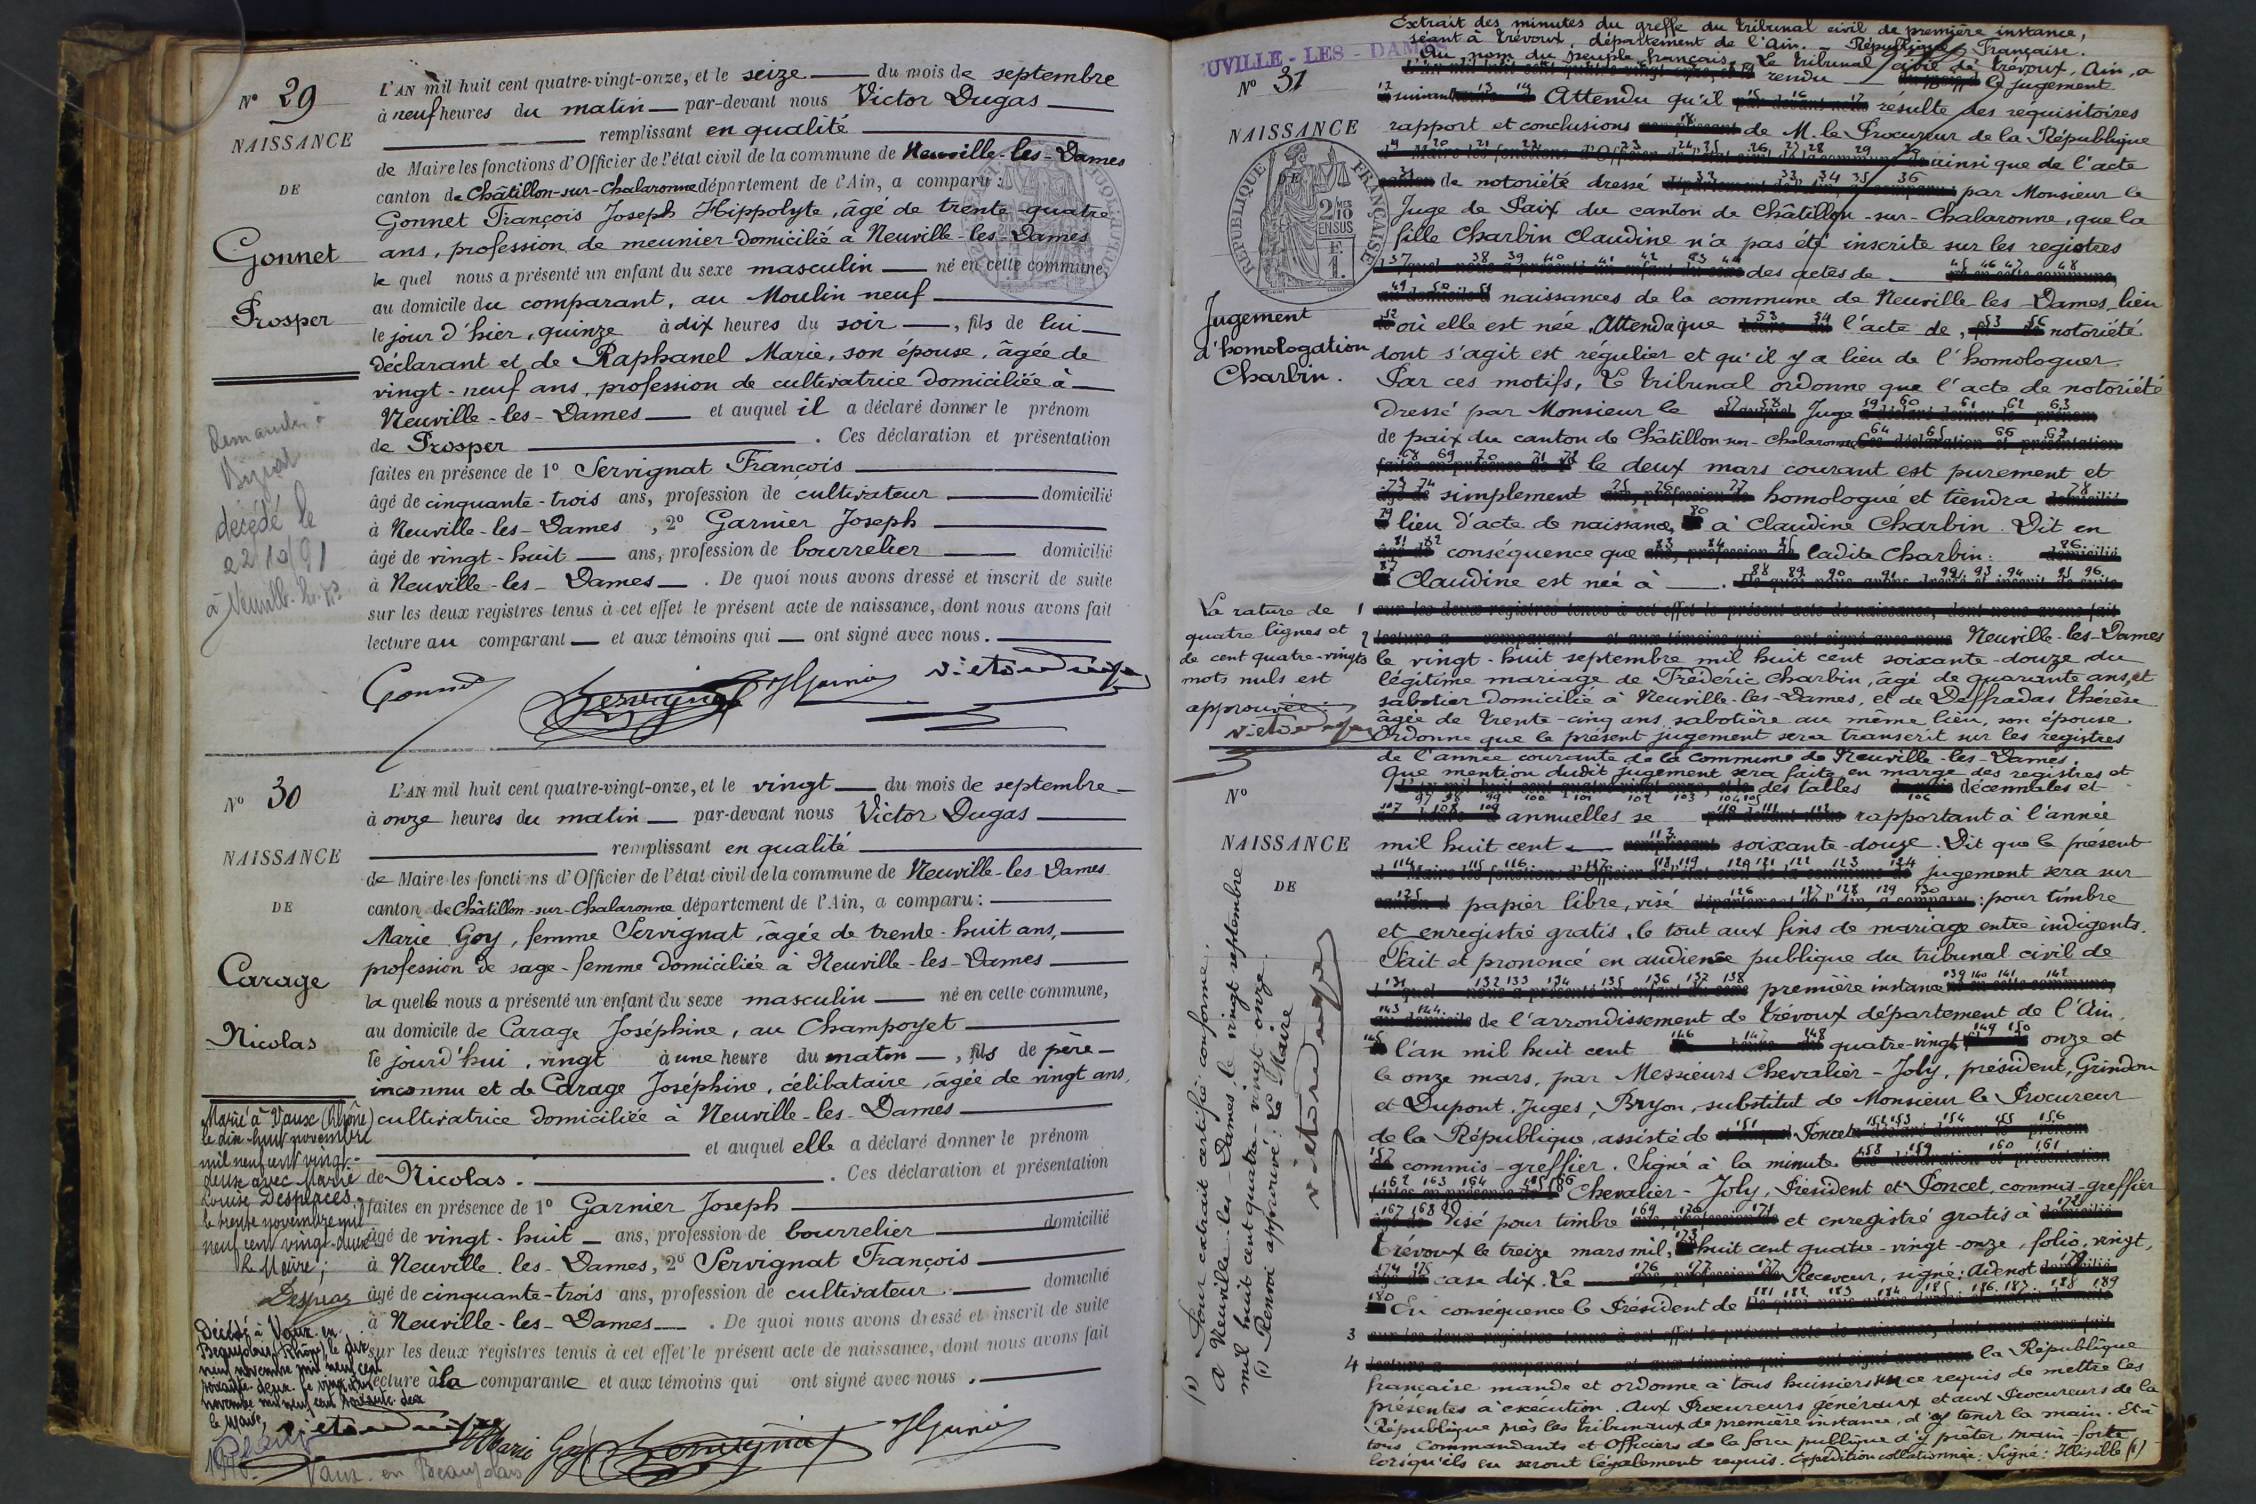 N° 29
NAISSANCE
DE
Gonnet
Prosper
décédé le
L'AN mil huit cent quatre-vingt-onze, et le seize du mois de septembre
à neuf heures du matin par-devant nous Victor Dugas
remplissant en qualité
de Maire les fonctions d'Officier de l'état civil de la commune de Neuville-les-Dames
canton de Châtillon-sur-Chalaronne département de l'Ain, a comparu :
Gonnet François Joseph Hippolyte, âgé de trente-quatre
ans, profession de meunier domicilié à Neuville-les-Dames
le quel nous a présenté un enfant du sexe masculin né en cette commune,
au domicile du comparant, au Moulin neuf
le jour d'hier, quinze à dix heures du soir, fils de lui
déclarant et de Raphanel Marie, son épouse, âgée de
vingt-neuf ans, profession de cultivatrice domiciliée à
Neuville-les-Dames et auquel il a déclaré donner le prénom
de Prosper. Ces déclaration et présentation
faites en présence de 1° Servignat François
âgé de cinquante-trois ans, profession de cultivateur domicilié
à Neuville-les-Dames, 2° Garnier Joseph
âgé de vingt-huit ans, profession de bourrelier domicilié
à Neuville-les-Dames. De quoi nous avons dressé et inscrit de suite
sur les deux registres tenus à cet effet le présent acte de naissance, dont nous avons fait
lecture au comparant et aux témoins qui ont signé avec nous.
Gonnet Servignat JGarnier Victor Dugas
N° 30
NAISSANCE
DE
Carage
Nicolas
L'AN mil huit cent quatre-vingt-onze, et le vingt du mois de septembre
à onze heures du matin par-devant nous Victor Dugas
remplissant en qualité
de Maire les fonctions d'Officier de l'état civil de la commune de Neuville-les-Dames
canton de Châtillon-sur-Chalaronne département de l'Ain, a comparu :
Marie Goy, femme Servignat, âgée de trente-huit ans,
profession de sage-femme domiciliée à Neuville-les-Dames
la quelle nous a présenté un enfant du sexe masculin né en cette commune,
au domicile de Carage Joséphine, au Champoyet
le jourd'hui, vingt à une heure du matin, fils de père
inconnu et de Carage Joséphine, célibataire, âgée de vingt ans,
cultivatrice domiciliée à Neuville-les-Dames
et auquel elle a déclaré donner le prénom
de Nicolas. Ces déclaration et présentation
faites en présence de 1° Garnier Joseph
âgé de vingt-huit ans, profession de bourrelier domicilié
à Neuville-les-Dames, 2° Servignat François
âgé de cinquante-trois ans, profession de cultivateur domicilié
à Neuville-les-Dames. De quoi nous avons dressé et inscrit de suite
sur les deux registres tenus à cet effet le présent acte de naissance, dont nous avons fait
lecture à la comparante et aux témoins qui ont signé avec nous.
Marié à Vaux (Rhône)
le dix huit novembre
mil neuf cent vingt-
deux avec Marie
Louise Desplaces.
le trente novembre mil
neuf cent vingt-deux
Le Maire;
Décédé à Vaux en
Beaujolais, Rhône, le dix
neuf novembre mil neuf cent
soixante deux. le vingt deux
novembre mil neuf cent soixante deux
le Maire,
Victor Dugas Marie Goy Servignat JGarnier
Vaux en Beaujolais
UVILLE-LES-DAMES
N° 31
NAISSANCE
RÉPUBLIQUE FRANÇAISE
2/10 EN SUS
Jugement
d'homologation
Charbin.
Extrait des minutes du greffe du tribunal civil de première instance,
séant à Trévoux, département de l'Ain. République Française.
Au nom du peuple français. Le tribunal civil de Trévoux, Ain, a
rendu le jugement
suivant Attendu qu'il résulte des réquisitoires
rapport et conclusions de M. le Procureur de la République
ainsi que de l'acte
de notoriété dressé par Monsieur le
Juge de Paix du canton de Châtillon-sur-Chalaronne, que la
fille Charbin Claudine n'a pas été inscrite sur les registres
des actes de
naissances de la commune de Neuville les Dames, lieu
où elle est née, Attendu que l'acte de, notoriété
dont s'agit est régulier et qu'il y a lieu de l'homologuer.
Par ces motifs, Le tribunal ordonne que l'acte de notoriété
dressé par Monsieur le Juge
de paix du canton de Châtillon-sur-Chalaronne
le deux mars courant est purement et
simplement homologué et tiendra
lieu d'acte de naissance, à Claudine Charbin. Dit en
conséquence que ladite Charbin:
Claudine est née à
Neuville-les-Dames
le vingt-huit septembre mil huit cent soixante-douze du
légitime mariage de Frédéric Charbin, âgé de quarante ans, et
sabotier domicilié à Neuville-les-Dames, et de Deffradas Thérèse
âgée de trente-cinq ans, sabotière au même lieu, son épouse.
Ordonne que le présent jugement sera transcrit sur les registres
de l'année courante de la commune de Neuville-les-Dames.
Que mention dudit jugement sera faite en marge des registres et
des tables décennales et
annuelles se rapportant à l'année
mil huit cent soixante-douze. Dit que le présent
jugement sera sur
papier libre, visé pour timbre
et enregistré gratis, le tout aux fins de mariage entre indigents.
Fait et prononcé en audience publique du tribunal civil de
première instance
de l'arrondissement de Trévoux département de l'Ain.
l'an mil huit cent quatre-vingt onze et
le onze mars, par Messieurs Chevalier-Joly, président, Grindon
et Dupont, Juges, Bryon, substitut de Monsieur le Procureur
de la République, assisté de Poncet
commis-greffier. Signé à la minute
Chevalier-Joly, Président et Poncet, commis-greffier
Visé pour timbre et enregistré gratis à
Trévoux le treize mars mil, huit cent quatre-vingt-onze, folio, vingt,
case dix. Le Receveur, signé: Adenot
En conséquence le Président de
la République
française mande et ordonne à tous huissiers sur ce requis de mettre les
présentes à exécution. Aux Procureurs généraux et aux Procureurs de la
République près les tribunaux de première instance, d'y tenir la main. Et à
tous Commandants et Officiers de la force publique d'y prêter main-forte
lorsqu'ils en seront légalement requis. Expédition collationnée: Signé: Illisible (1)
La rature de
quatre lignes et
de cent quatre-vingts
mots nuls est
approuvée.
Victor Dugas
N°
NAISSANCE
DE
(1) Pour extrait certifié conforme.
A Neuville-les-Dames le vingt septembre
mil huit cent quatre-vingt onze.
(1) Renvoi approuvé: Le Maire
Victor Dugas